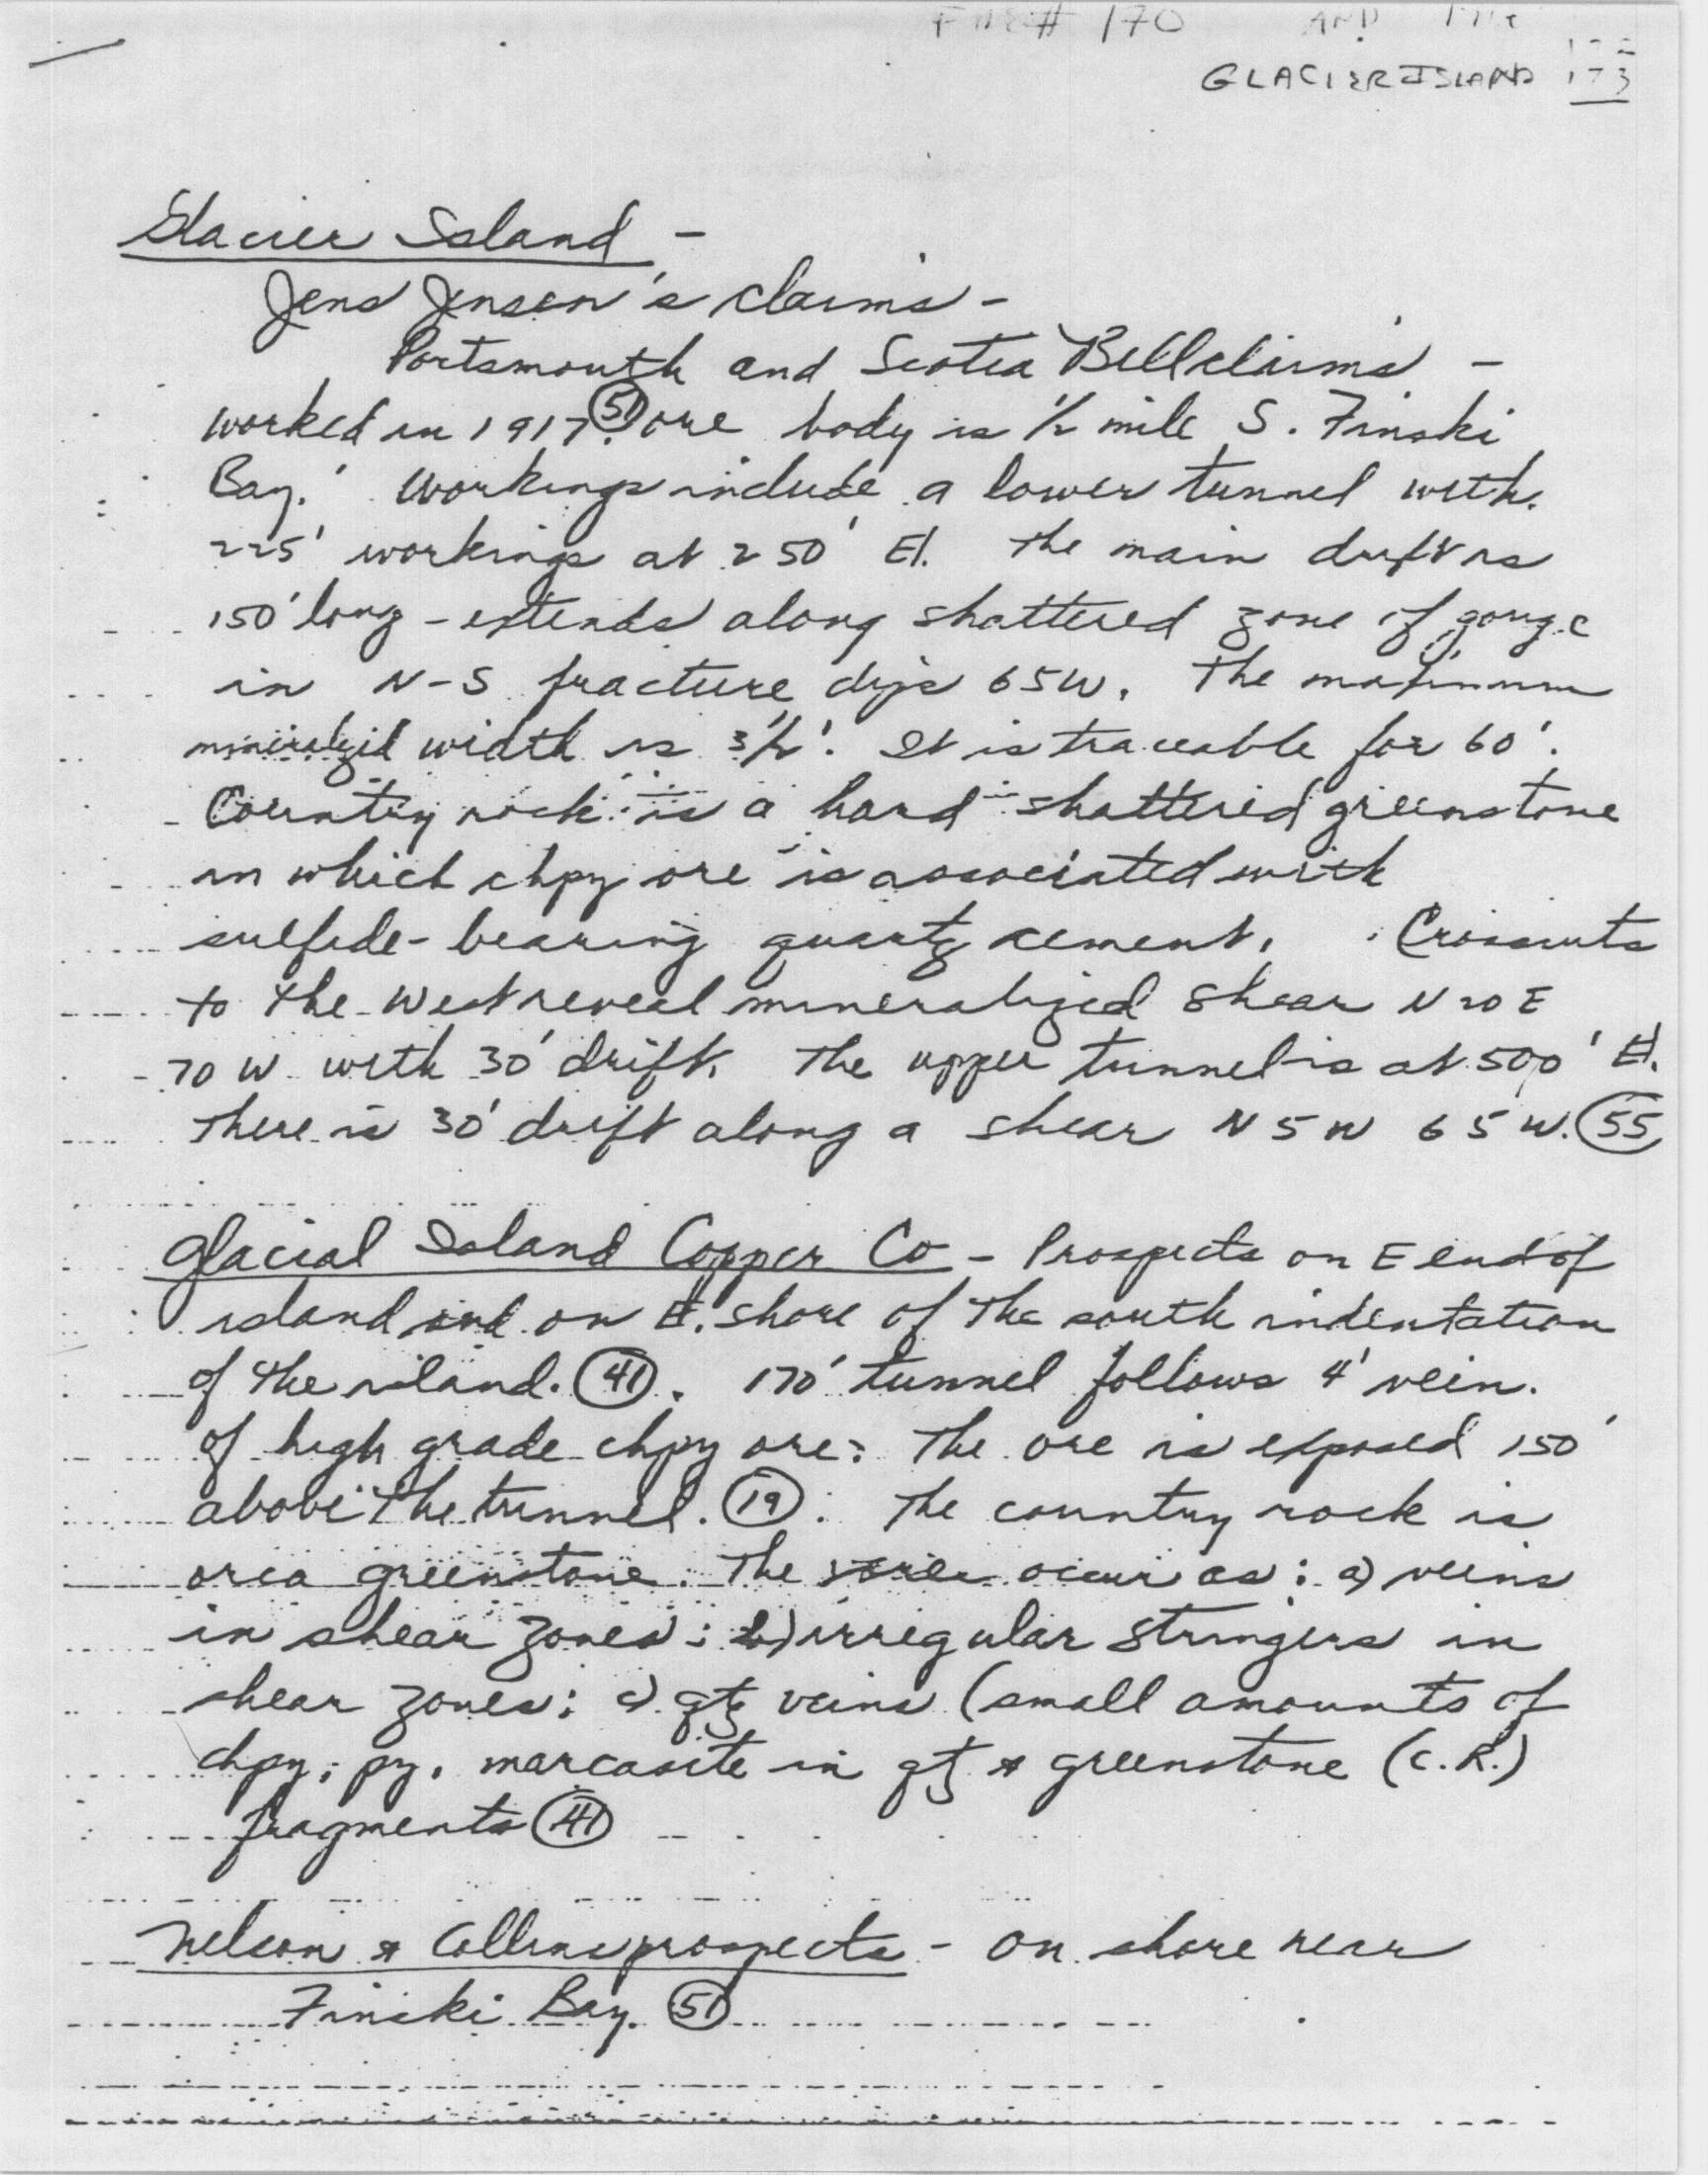 FILE# 170 AND
GLACIER ISLAND 173
Glacier Island -
Jens Jensen's claims -
Portsmouth and Scotia Bell claims -
worked in 1917. (51) ore body is 1/2 mile S. Finski
Bay. Workings include a lower tunnel with
225' workings at 250' El. The main drift is
150' long - extends along shattered zone of gouge
in N-S fracture dips 65W. The maximum
mineralized width is 3 1/2'. It is traceable for 60'.
Country rock is a hard shattered greenstone
in which chpy ore is associated with
sulfide-bearing quartz cement. Crosscuts
to the west reveal mineralized shear N 20 E
70 W with 30' drift. The upper tunnel is at 500' El.
There is 30' drift along a shear N 5 W 65 W. (55)
Glacial Island Copper Co - Prospects on E end of
island and on E. shore of the south indentation
of the island. (41). 170' tunnel follows 4' vein
of high grade chpy ore. The ore is exposed 150'
above the tunnel. (19). The country rock is
orca greenstone. The ores occur as: a) veins
in shear zones; b) irregular stringers in
shear zones; c) qtz veins (small amounts of
chpy, py, marcasite in qtz & greenstone (C.R.)
fragments (41)
Nelson & Collins prospects - On shore near
Finski Bay. (51)